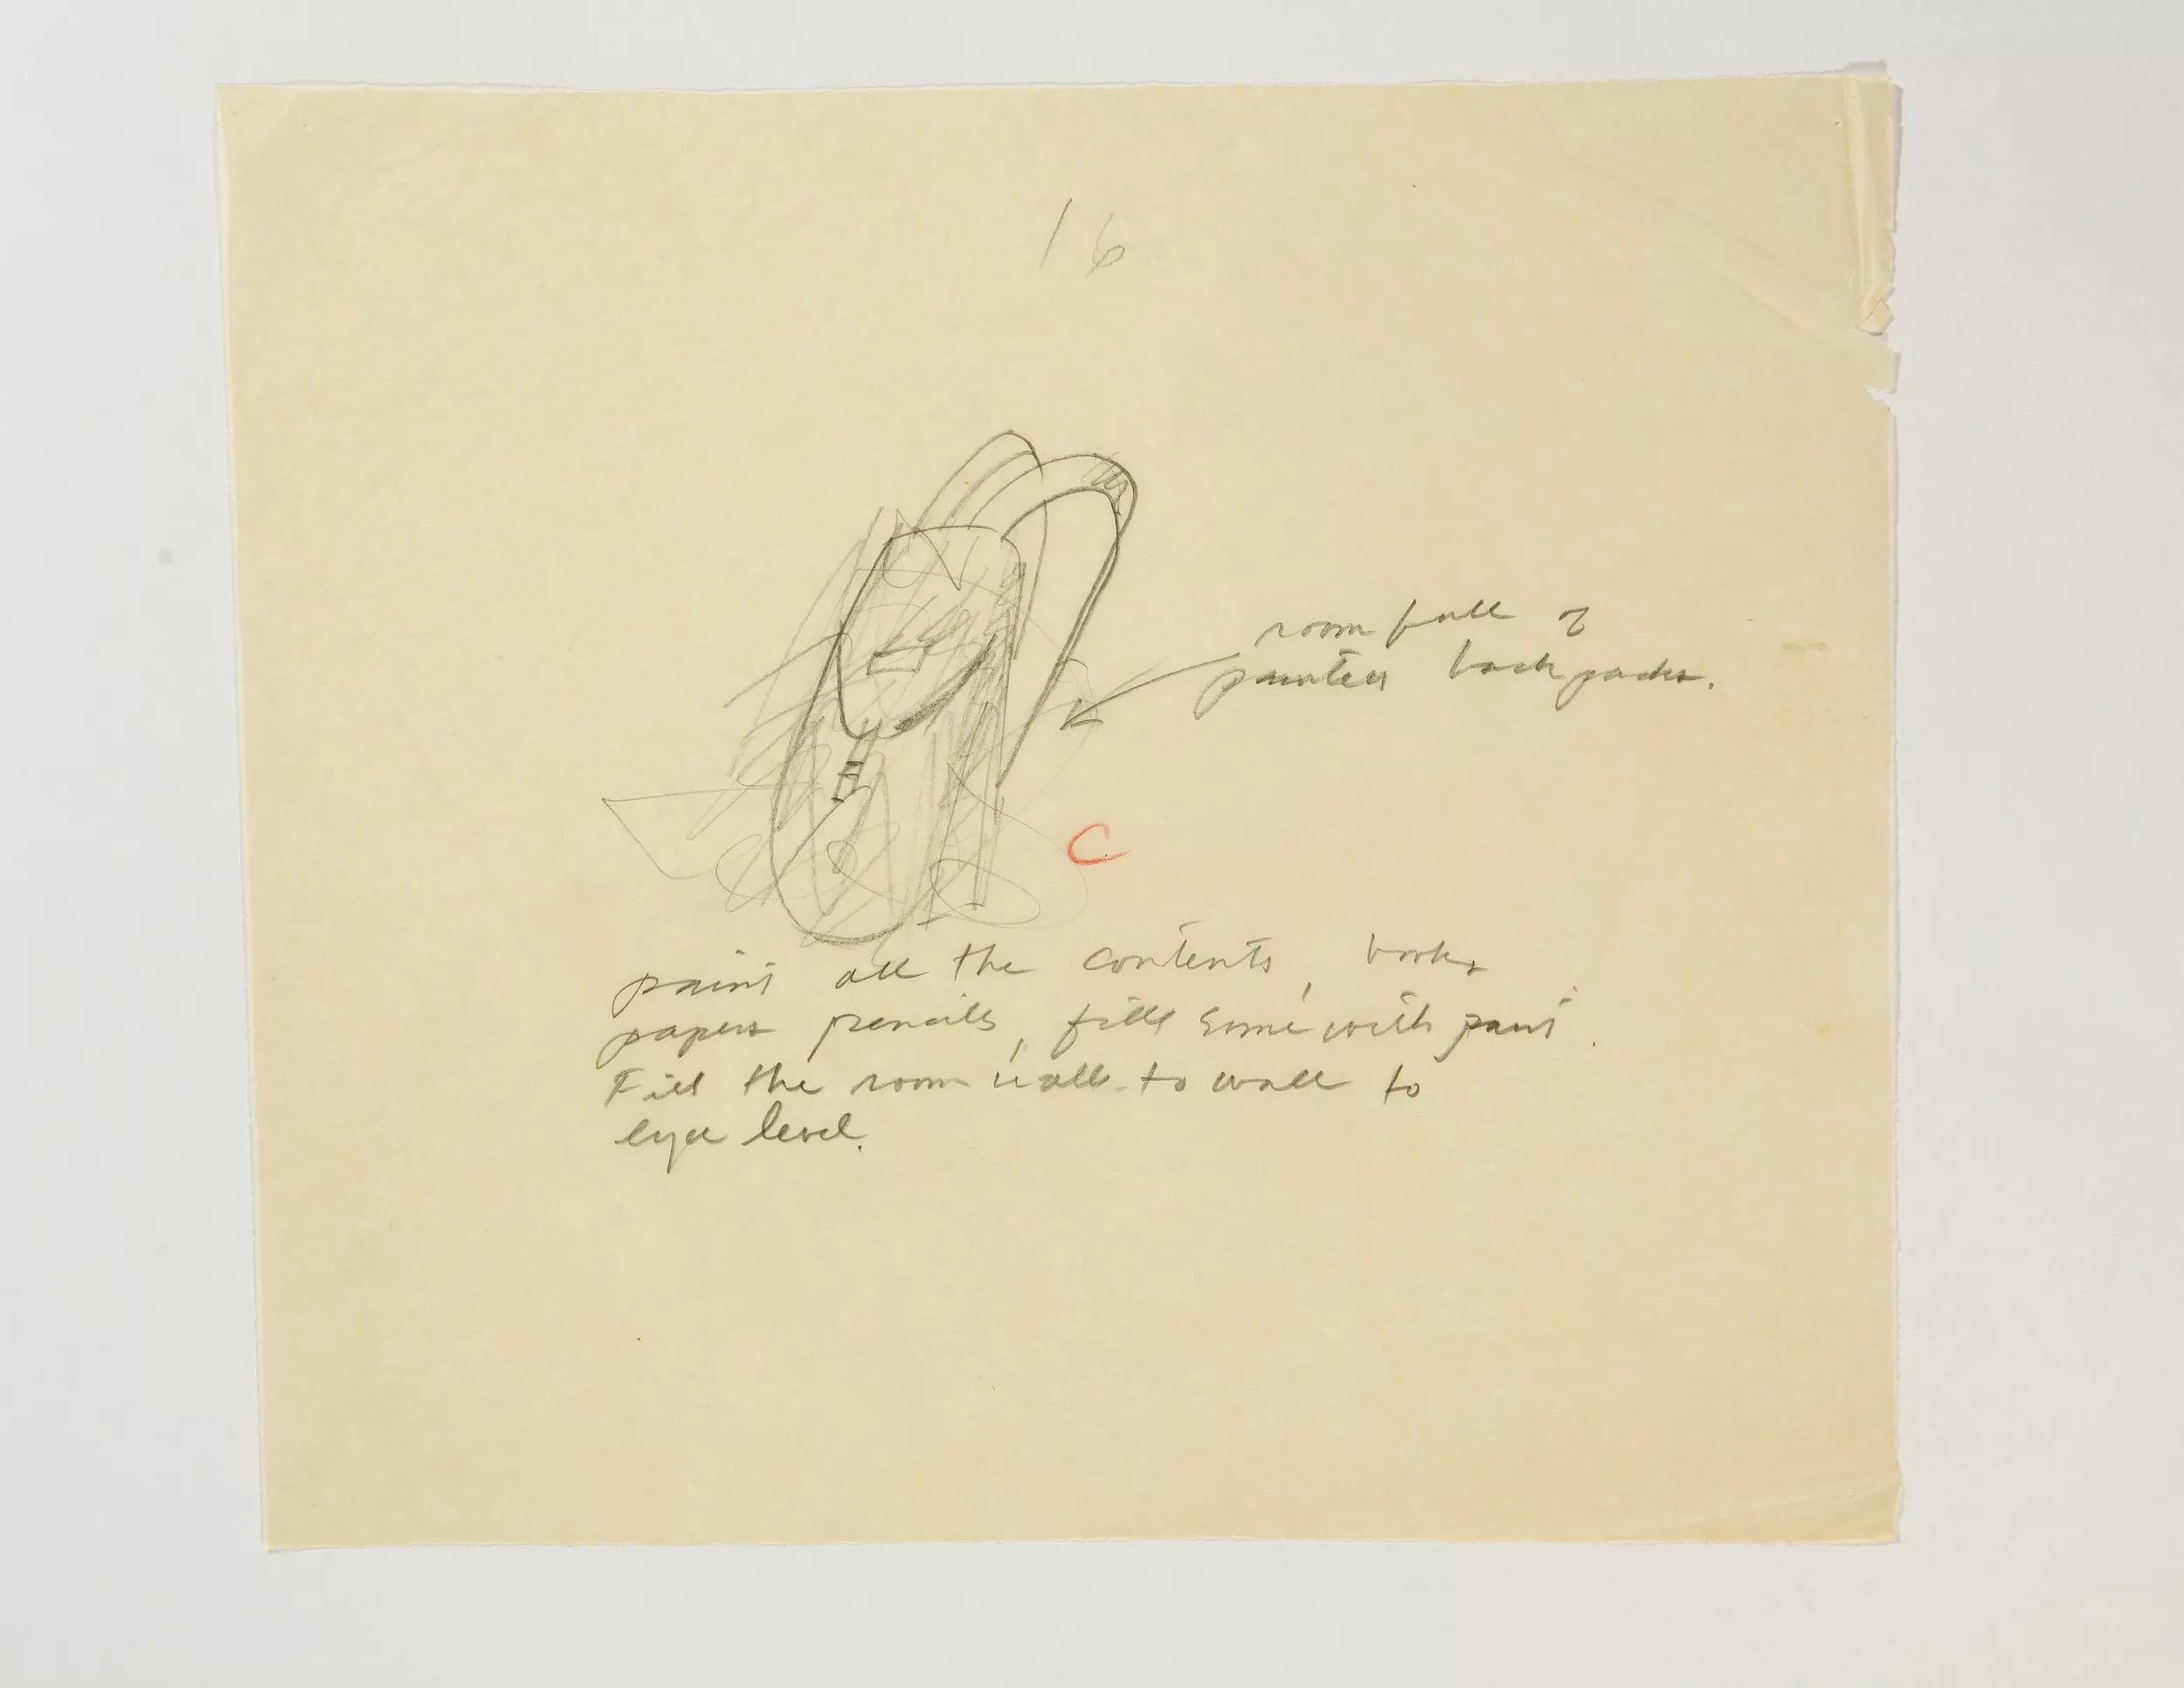 16
room full of
painted back packs.
C
paint all the contents, books
papers pencils, fill some with paint.
Fill the room wall to wall to
eye level.